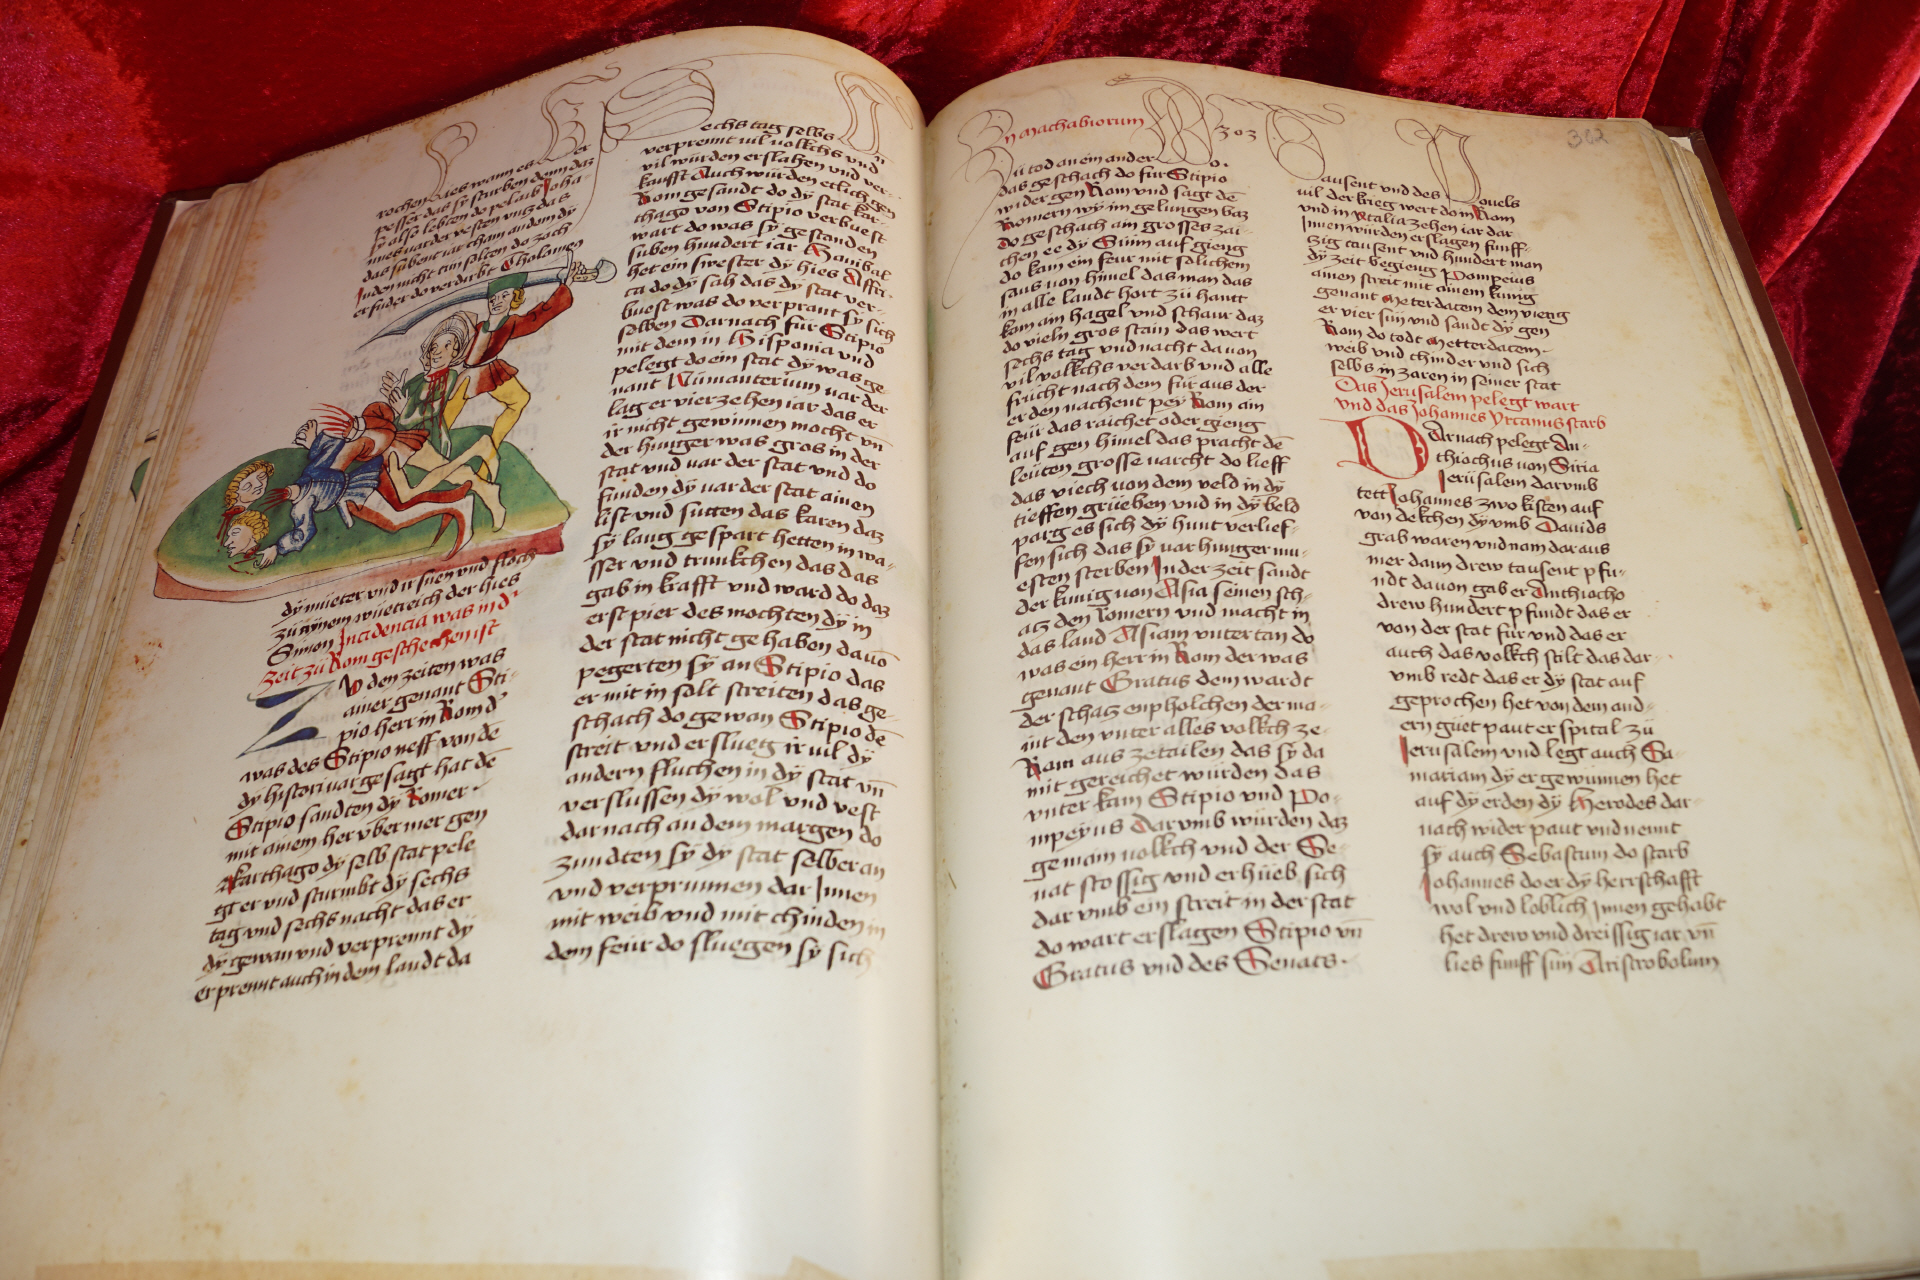 rochen des wann es er
pesser das sÿ sturben denn daz
sÿ also lebten do pelaib Joha-
nnes vor der vesten vnz das
das sübent iar cham an dem dÿ
Juden nicht tun solten do zoch
er fuder do verdarbt Tholomeu
dÿ müeter vnd ir suen vnd floch
zu aÿnem wüetreich der hies
Simon Incidencia was in d'
zeit zu Rom geschechen ist
Zv den zeiten was
ainer genant Sti-
pio herr in Rom d'
was des Stipio neff von dē
dÿ histori uar gesagt hat dē
Stipio sandten dÿ Romer
mit ainem her vber mer gen
Karthago dÿ selb stat pele
gt er vnd sturmbt dÿ sechs
tag vnd sechs nacht das er
dÿ gewan vnd verprennt dÿ
er prennt auch in dem landt da
echs tag selbs
verprennt vil volkchs vnd
vil würden erslahen vnd ver-
kaufft Auch würden etlich gen
Rom gesandt do dÿ stat kar-
thago von Stipio verbuest
wart do was sÿ gestanden
süben hundert iar Hanibal
het ein swester dÿ hies Affri-
ca do dÿ sah das dÿ stat ver-
buest was do verprant sÿ sich
selben Darnach für Stipio
mit dem in Hisponia vnd
pelegt do ein stat dÿ was ge-
nant Nümanterium uar der
lag er vierzehen iar das er
ir nicht gewinnen mocht vn̄
der hunger was gros in der
stat vnd uar der stat vnd do
funden dÿ uar der stat ainen
list vnd sutten das karen daz
sÿ lang gespart hetten in wa-
sser vnd trunkchen das das
gab in krafft vnd ward do daz
erst pier des mochten dÿ in
der stat nicht gehaben dauō
pegerten sÿ an Stipio das
er mit in solt streiten das ge-
schach do gewan Stipio dē
streit vnd erslueg ir vil dÿ
andern fluchen in dÿ stat vn̄
verslussen dÿ wol vnd vest
darnach an dem margen do
zundten sÿ dÿ stat selber an
vnd verprunnen dar Innen
mit weib vnd mit chinden in
dem feur do sluegen sÿ sich
Machabiorum
303
362
Zu tod an ein ander Do.
das geschach do für Stipio
wider gen Rom vnd sagt dē
Romern wÿ im gelungen waz
do geschach am grosses zai-
chen ee dÿ Sunn auf gieng
do kam ein feur mit solichem
saus von himel das man das
in alle landt hort zu hantt
kam ain hagel vnd schaur daz
do vieln gros stain das wert
sechs tag vnd nacht dauon
vil volkchs verdarb vnd alle
frücht nach dem für aus der
erden nachent pey Rom ain
feür das raichet oder gieng
auf gen himel das pracht dē
leüten grosse uarcht do lieff
das viech von dem veld in dÿ
tieffen grüeben vnd in dÿ beld
parg es sich dÿ hunt verlief-
fen sich das sÿ uar hunger mu-
esten sterben In der zeit sandt
der kunig von Asia seinen sch-
acz den Romern vnd macht in
das land Asiam vntertan do
was ein herr in Rom der was
genant Gratus dem wardt
der schacz enpholchen der ma-
int den vnter alles volkch ze-
Rom aus zetailen das sÿ da
mit gereichet würden das
vnter kam Stipio vnd Po-
mpeyus Darvmb würden daz
gemain volkch vnd der Se-
nat stossig vnd erhüeb sich
darvmb ein streit in der stat
do wart erslagen Stipio vn̄
Gratus vnd des Senats.
Tausent vnd des Pouels
vil der krieg wert do in Rom
vnd in Italia zehen iar dar
Innen würden erslagen funff-
zig tausent vnd hundert man
dÿ zeit begieng Pompeius
ainen streit mit ainem kunig
genant Meterdatem dem vieng
er vier sün vnd sandt dÿ gen
Rom do todt Metterdatem
weib vnd chinder vnd sich
selbs in zoren in seiner stat
Das Jerusalem pelegt wart
vnd das Johannes Yrcanus starb
Darnach pelegt An-
thiochus von Siria
Jerusalem darvmb
tett Johannes zwo kisten auf
von dekchen dÿ vmb Dauids
grab waren vnd nam daraus
mer dann drew tausent pfu-
ndt dauon gab er Anthiocho
drew hundert pfundt das er
von der stat für vnd das er
auch das volkch stilt das dar-
vmb redt das er dÿ stat auf
geprochen het von dem and-
ern güet paut er spital zü
Jerusalem vnd legt auch Sa-
mariam dÿ er gewunnen het
auf dÿ erden dÿ Herodes dar-
nach wider paut vnd nennt
sÿ auch Sebastum do starb
Johannes do er dÿ herrschafft
wol vnd loblich Innen gehabt
het drew vnd dreissig iar vn̄
lies funff sün Aristobolum